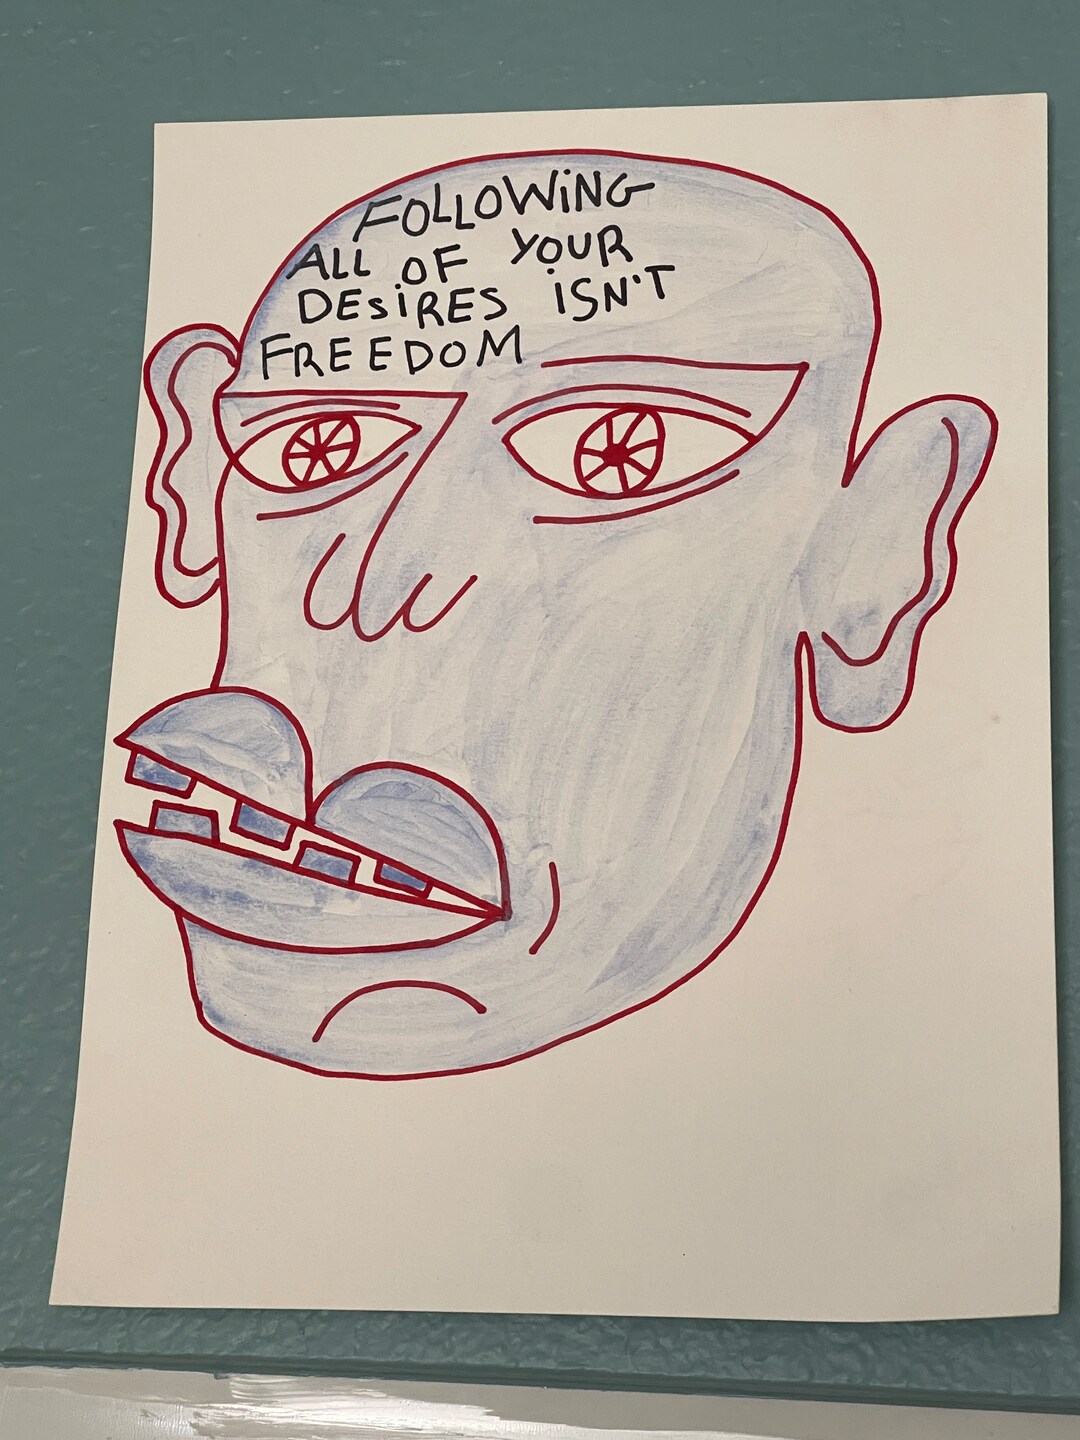 FOLLOWiNG
ALL OF YOUR
DEsiRES iSN'T
FREEDOM